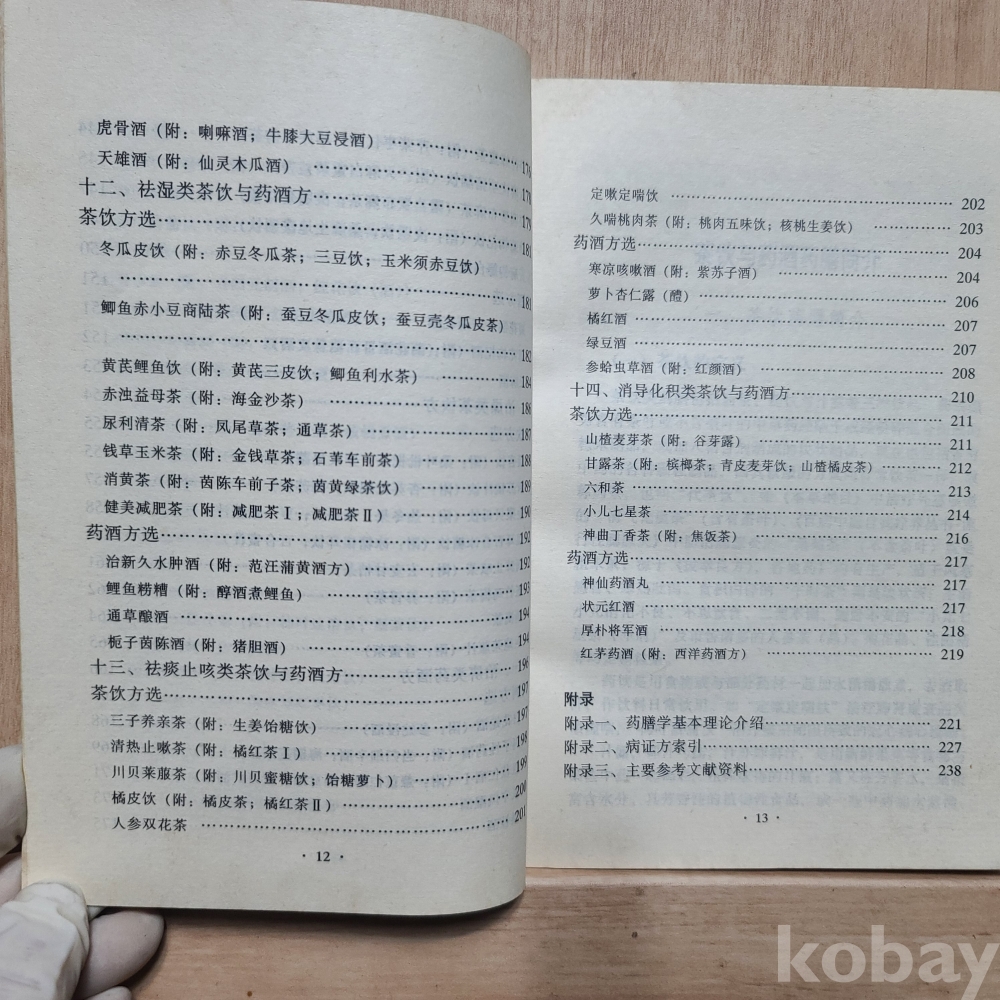 虎骨酒（附：喇嘛酒；牛膝大豆浸酒）……………………
天雄酒（附：仙灵木瓜酒）……………………
十二、祛湿类茶饮与药酒方……………………
茶饮方选……………………
冬瓜皮饮（附：赤豆冬瓜茶；三豆饮；玉米须赤豆饮）
……………………
鲫鱼赤小豆商陆茶（附：蚕豆冬瓜皮饮；蚕豆壳冬瓜皮茶）
……………………
黄芪鲤鱼饮（附：黄芪三皮饮；鲫鱼利水茶）……………………
赤浊益母茶（附：海金沙茶）……………………
尿利清茶（附：凤尾草茶；通草茶）……………………
钱草玉米茶（附：金钱草茶；石苇车前茶）……………………
消黄茶（附：茵陈车前子茶；茵黄绿茶饮）……………………
健美减肥茶（附：减肥茶Ⅰ；减肥茶Ⅱ）……………………
药酒方选……………………192
治新久水肿酒（附：范汪蒲黄酒方）……………………192
鲤鱼捞糟（附：醇酒煮鲤鱼）……………………193
通草酿酒……………………194
栀子茵陈酒（附：猪胆酒）……………………194
十三、祛痰止咳类茶饮与药酒方……………………196
茶饮方选……………………197
三子养亲茶（附：生姜饴糖饮）……………………197
清热止嗽茶（附：橘红茶Ⅰ）……………………198
川贝莱菔茶（附：川贝蜜糖饮；饴糖萝卜）……………………199
橘皮饮（附：橘皮茶；橘红茶Ⅱ）……………………200
人参双花茶……………………201
· 12 ·
定嗽定喘饮……………………202
久喘桃肉茶（附：桃肉五味饮；核桃生姜饮）……………………203
药酒方选……………………204
寒凉咳嗽酒（附：紫苏子酒）……………………204
萝卜杏仁露（醴）……………………206
橘红酒……………………207
绿豆酒……………………207
参蛤虫草酒（附：红颜酒）……………………208
十四、消导化积类茶饮与药酒方……………………210
茶饮方选……………………211
山楂麦芽茶（附：谷芽露）……………………211
甘露茶（附：槟榔茶；青皮麦芽饮；山楂橘皮茶）……………………212
六和茶……………………213
小儿七星茶……………………214
神曲丁香茶（附：焦饭茶）……………………216
药酒方选……………………217
神仙药酒丸……………………217
状元红酒……………………217
厚朴将军酒……………………218
红茅药酒（附：西洋药酒方）……………………219
附录
附录一、药膳学基本理论介绍……………………221
附录二、病证方索引……………………227
附录三、主要参考文献资料……………………238
· 13 ·
kobay